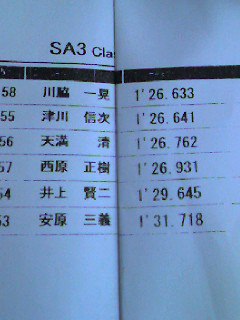 SA3 Cla
58 川脇 一晃 1'26.633
55 津川 信次 1'26.641
56 天満 清 1'26.762
57 西原 正樹 1'26.931
54 井上 賢二 1'29.645
53 安原 三義 1'31.718